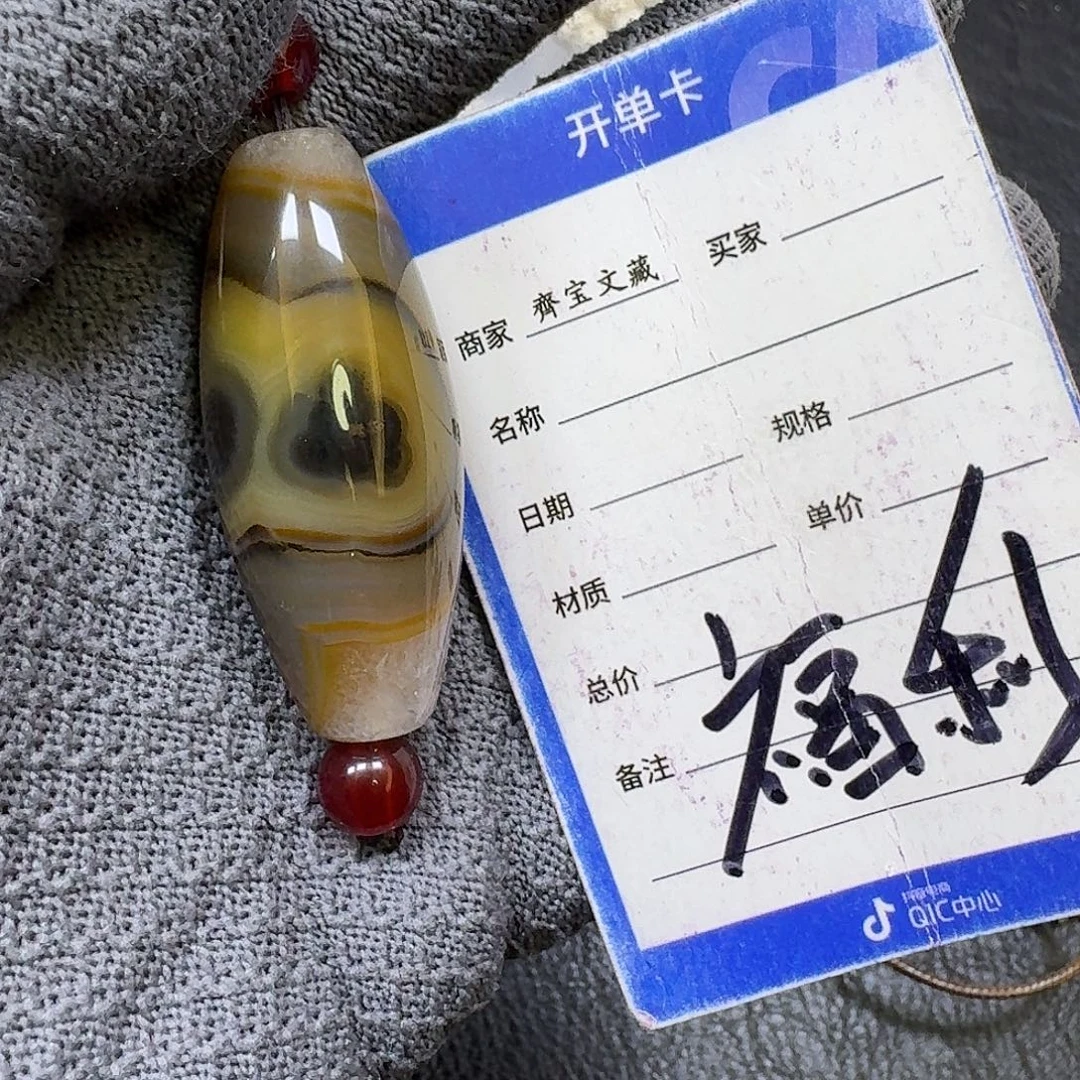 开单卡
商家 齊宝文藏 买家
名称
日期 规格
材质 单价
总价
备注
福利
QIC中心